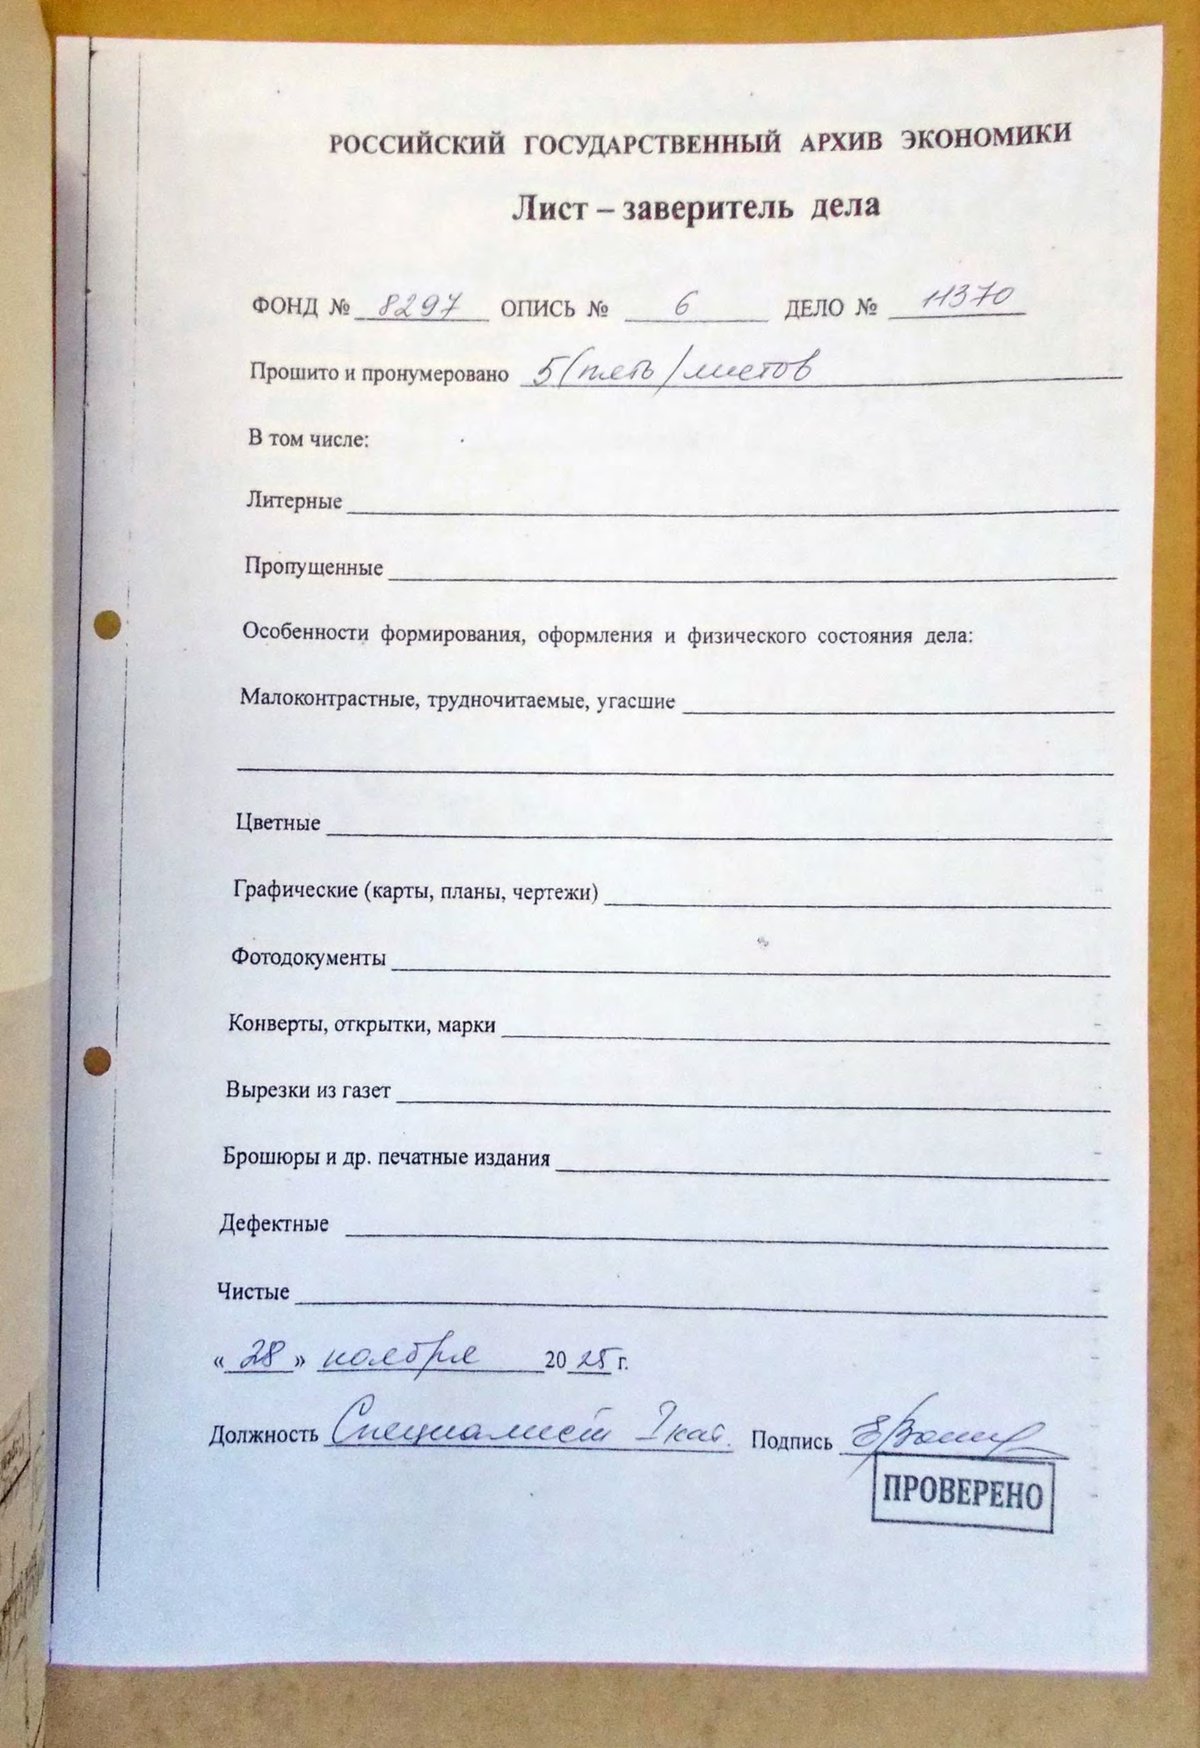 РОССИЙСКИЙ ГОСУДАРСТВЕННЫЙ АРХИВ ЭКОНОМИКИ
Лист – заверитель дела
ФОНД № 8297 ОПИСЬ № 6 ДЕЛО № 11370
Прошито и пронумеровано 5 (пять) листов
В том числе:
Литерные
Пропущенные
Особенности формирования, оформления и физического состояния дела:
Малоконтрастные, трудночитаемые, угасшие
Цветные
Графические (карты, планы, чертежи)
Фотодокументы
Конверты, открытки, марки
Вырезки из газет
Брошюры и др. печатные издания
Дефектные
Чистые
« 28 » ноября 20 25 г.
Должность Специалист I кат. Подпись
ПРОВЕРЕНО